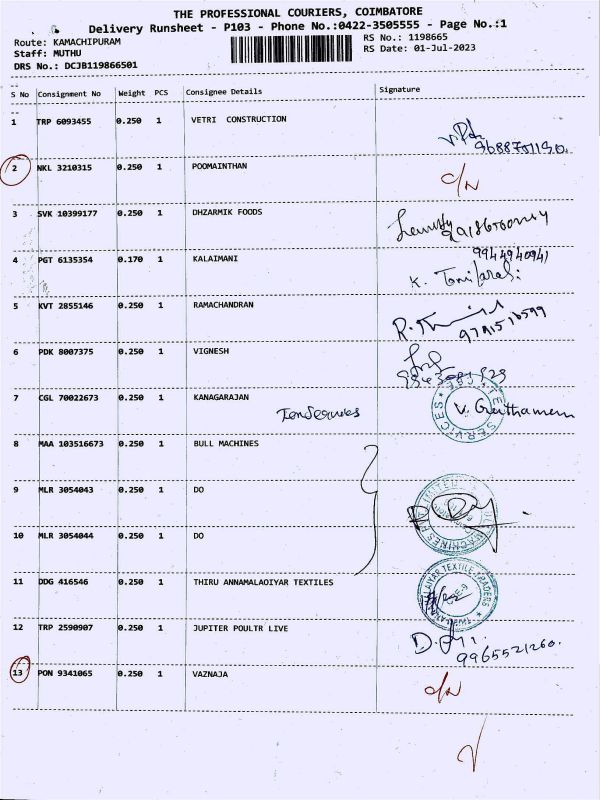 THE PROFESSIONAL COURIERS, COIMBATORE
Delivery Runsheet - P103 - Phone No.:0422-3505555 - Page No.:1
Route: KAMACHIPURAM
Staff: MUTHU
DRS No.: DCJB119866501
RS No.: 1198665
RS Date: 01-Jul-2023
S No Consignment No Weight PCS Consignee Details Signature
1 TRP 6093455 0.250 1 VETRI CONSTRUCTION
2 NKL 3210315 0.250 1 POOMAINTHAN
3 SVK 10399177 0.250 1 DHZARMIK FOODS
4 PGT 6135354 0.170 1 KALAIMANI 9944940941
5 KVT 2855146 0.250 1 RAMACHANDRAN
6 PDK 8007375 0.250 1 VIGNESH
7 CGL 70022673 0.250 1 KANAGARAJAN
8 MAA 103516673 0.250 1 BULL MACHINES
9 MLR 3054043 0.250 1 DO
10 MLR 3054044 0.250 1 DO
11 DDG 416546 0.250 1 THIRU ANNAMALAOIYAR TEXTILES
12 TRP 2590907 0.250 1 JUPITER POULTR LIVE
9965521260.
13 PON 9341065 0.250 1 VAZNAJA